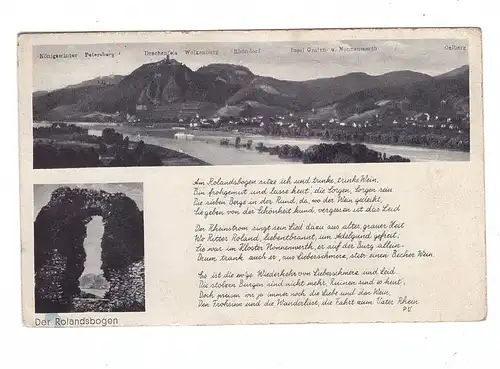 Königswinter Petersberg Drachenfels Wolkenburg Rhöndorf Insel Grafen- u. Nonnenwerth Oelberg
Am Rolandsbogen sitze ich und trinke, trinke Wein,
Bin frohgemut und lasse heut', die Sorgen, Sorgen sein
Die sieben Berge in der Rund, da, wo der Wein gedeiht,
Sie geben von der Schönheit kund, vergessen ist das Leid
Der Rheinstrom singt sein Lied dazu aus alter, grauer Zeit
Wo Ritter Roland, liebentbrannt, um Adelgund gefreit,
Sie war im Kloster Nonnenwerth, er auf der Burg allein-
Drum trank auch er, aus Liebesschmerz, stets einen Becher Wein
Es ist die ew'ge Wiederkehr von Liebesschmerz und Leid
Die stolzen Burgen sind nicht mehr, Ruinen sind es heut',
Doch preisen wir ja immer noch die Liebe und den Wein,
Den Frohsinn und die Wanderlust, die Fahrt zum Vater Rhein
Der Rolandsbogen